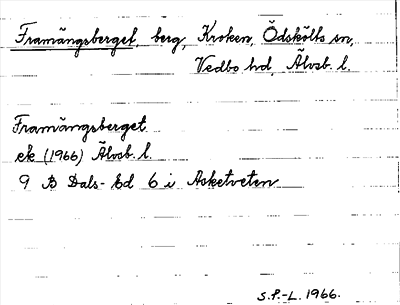 Framängsberget, berg, Kroken, Ödskölts sn,
Vedbo hd, Älvsb. l.
Framängsberget
ek (1966) Älvsb. l.
9 B Dals-Ed 6 i Asketveten
S.F.-L. 1966.